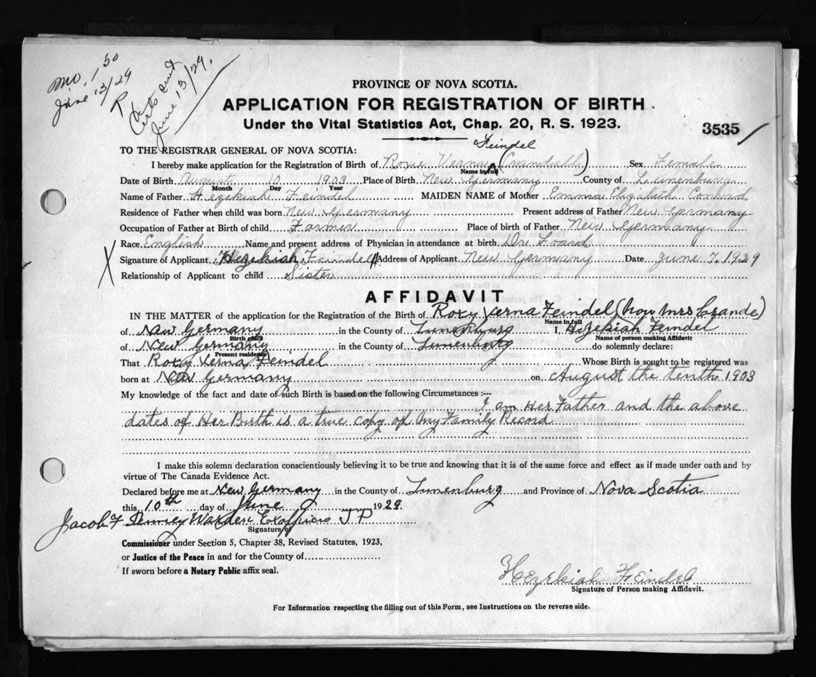 Mo. 1.50
June 13/29
Certs sent
June 13/29.
PROVINCE OF NOVA SCOTIA.
APPLICATION FOR REGISTRATION OF BIRTH
Under the Vital Statistics Act, Chap. 20, R. S. 1923.
3535
Feindel
TO THE REGISTRAR GENERAL OF NOVA SCOTIA:
I hereby make application for the Registration of Birth of Sex Female
Name in full
Date of Birth August 10 1903 Place of Birth New Germany County of Lunenburg
Month Day Year
Name of Father Hezekiah Feindel MAIDEN NAME of Mother Emma Elizabeth Conrad
Residence of Father when child was born New Germany Present address of Father New Germany
Occupation of Father at Birth of child Farmer Place of birth of Father New Germany
Race English Name and present address of Physician in attendance at birth Dr.
X Signature of Applicant Hezekiah Feindel Address of Applicant New Germany Date June 7, 1929
Relationship of Applicant to child Sister
AFFIDAVIT
IN THE MATTER of the application for the Registration of the Birth of Roxy Verna Feindel (now Mrs
Name in full
of New Germany in the County of Lunenburg I, Hezekiah Feindel
Birth place Name of person making Affidavit
of New Germany in the County of Lunenburg do solemnly declare:
Present residence
That Roxy Verna Feindel Whose Birth is sought to be registered was
born at New Germany on August the tenth 1903
My knowledge of the fact and date of such Birth is based on the following Circumstances :—
I am Her Father and the above
dates of Her Birth is a true copy of My Family Record
I make this solemn declaration conscientiously believing it to be true and knowing that it is of the same force and effect as if made under oath and by
virtue of The Canada Evidence Act.
Declared before me at New Germany in the County of Lunenburg and Province of Nova Scotia
this 10th day of June 1929
Jacob F Warden J P
Signature of
Commissioner under Section 5, Chapter 38, Revised Statutes, 1923,
or Justice of the Peace in and for the County of
If sworn before a Notary Public affix seal.
Hezekiah Feindel
Signature of Person making Affidavit.
For Information respecting the filling out of this Form, see Instructions on the reverse side.